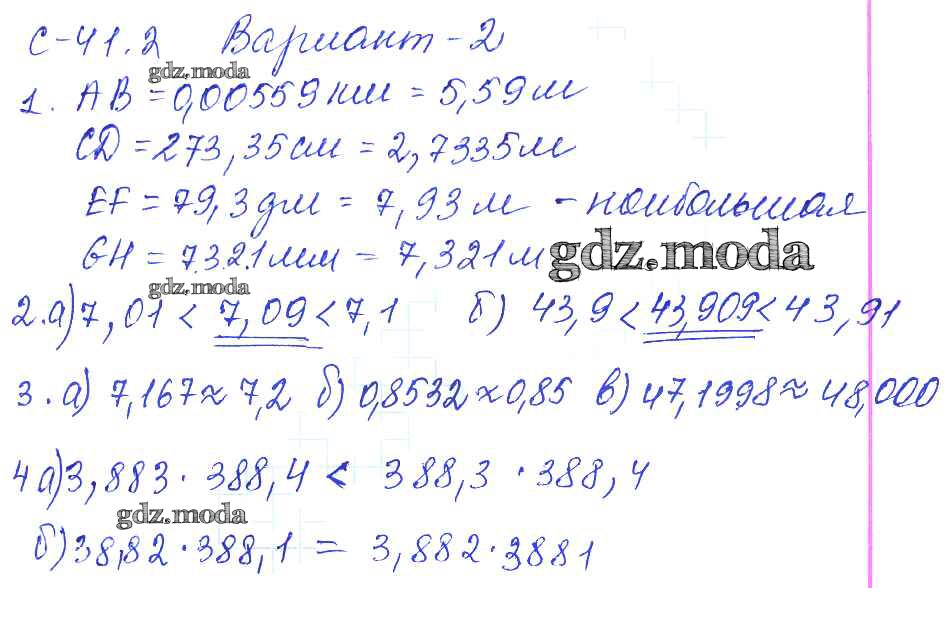 С-41.2 Вариант-2
gdz.moda
1. AB = 0,00559 км = 5,59 м
CD = 273,35 см = 2,7335 м
EF = 79,3 дм = 7,93 м - наибольшая
GH = 7321 мм = 7,321 м
gdz.moda
gdz.moda
2. а) 7,01 < 7,09 < 7,1 б) 43,9 < 43,909 < 43,91
3. а) 7,167 ≈ 7,2 б) 0,8532 ≈ 0,85 в) 47,1998 ≈ 48,000
4 а) 3,883 · 388,4 < 388,3 · 388,4
gdz.moda
б) 38,82 · 388,1 = 3,882 · 3881